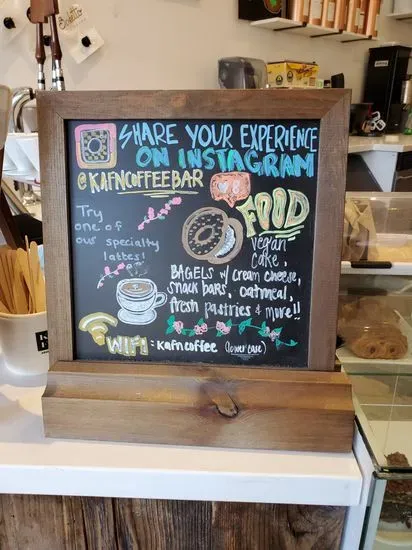 SHARE YOUR EXPERIENCE
ON INSTAGRAM
@KAFNCOFFEEBAR
FOOD
Vegan
cake,
BAGELS w/ cream cheese,
snack bars, oatmeal,
fresh pastries & more!!
Try
one of
our specialty
lattes!
WIFI: kafncoffee (lower case)